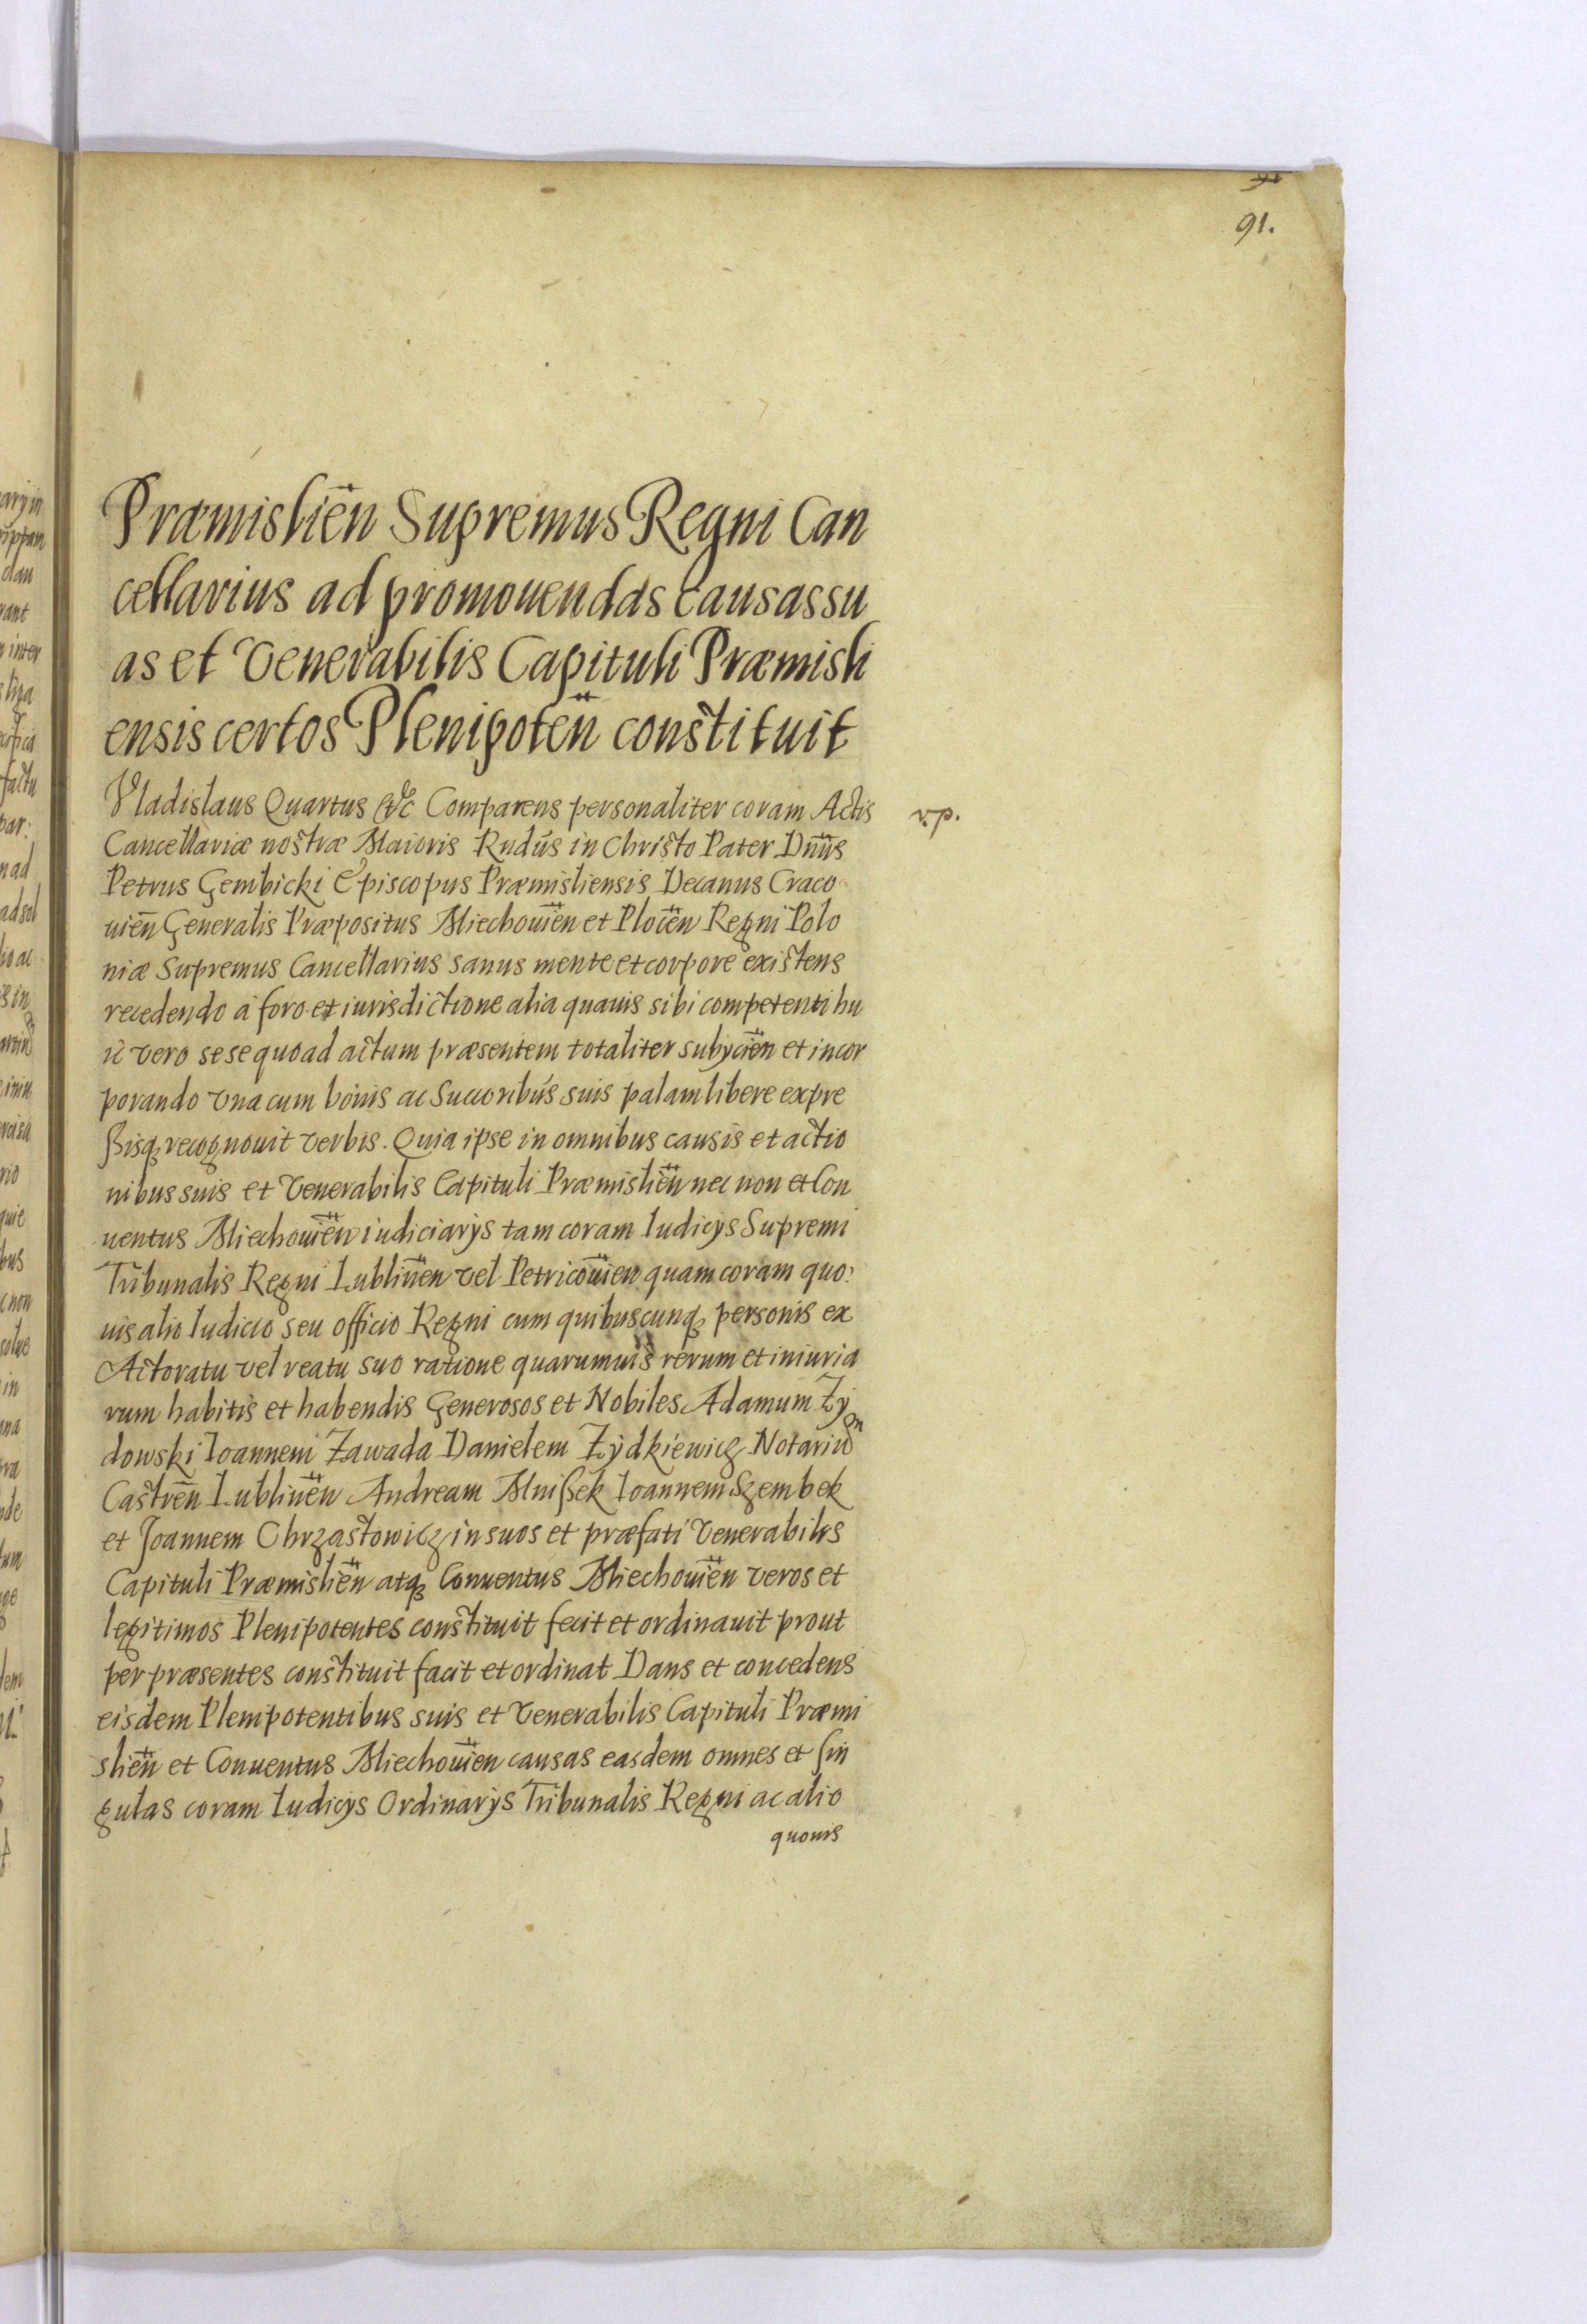 91.
Præmislien̄ Supremus Regni Can
cellarius ad promouendas causas su
as et Venerabilis Capituli Præmisli
ensis certos Plenipoten̄ constituit
Vladislaus Quartus &c Comparens personaliter coram Actis
v.p.
Cancellariæ nostræ Maioris Rndūs in Christo Pater Dnūs
Petrus Gembicki Episcopus Præmisliensis Decanus Craco
uien̄ Generalis Præpositus Miechouien̄ et Plocen̄ Regni Polo
niæ Supremus Cancellarius sanus mente et corpore existens
recedendo a foro et iurisdictione alia quauis sibi competenti hu
ic vero sese quoad actum præsentem totaliter subijcien̄ et incor
porando vna cum bonis ac Succoribūs suis palam libere expre
ßisq recognouit verbis. Quia ipse in omnibus causis et actio
nibus suis et Venerabilis Capituli Præmislien̄ nec non et Con
uentus Miechouien̄ iudiciarijs tam coram Iudicijs Supremi
Tribunalis Regni Lublinen̄ vel Petricouien̄ quam coram quo:
uis alio Iudicio seu officio Regni cum quibuscunq personis ex
Actoratu vel reatu suo ratione quarumuis rerum et iniuria
rum habitis et habendis Generosos et Nobiles Adamum Zÿ
dowski Ioannem Zawada Danielem Zÿdkiewicz Notariūm
Castren̄ Lublinen̄ Andream Mnißek Ioannem Szembek
et Joannem Chrzastowicz in suos et præfati Venerabilis
Capituli Præmislien̄ atq Conuentus Miechouien̄ veros et
legitimos Plenipotentes constituit fecit et ordinauit prout
per præsentes constituit facit et ordinat Dans et concedens
eisdem Plenipotentibus suis et Venerabilis Capituli Præmi
slien̄ et Conuentus Miechouien̄ causas easdem omnes et sin
gulas coram Iudicijs Ordinarijs Tribunalis Regni ac alio
quouis